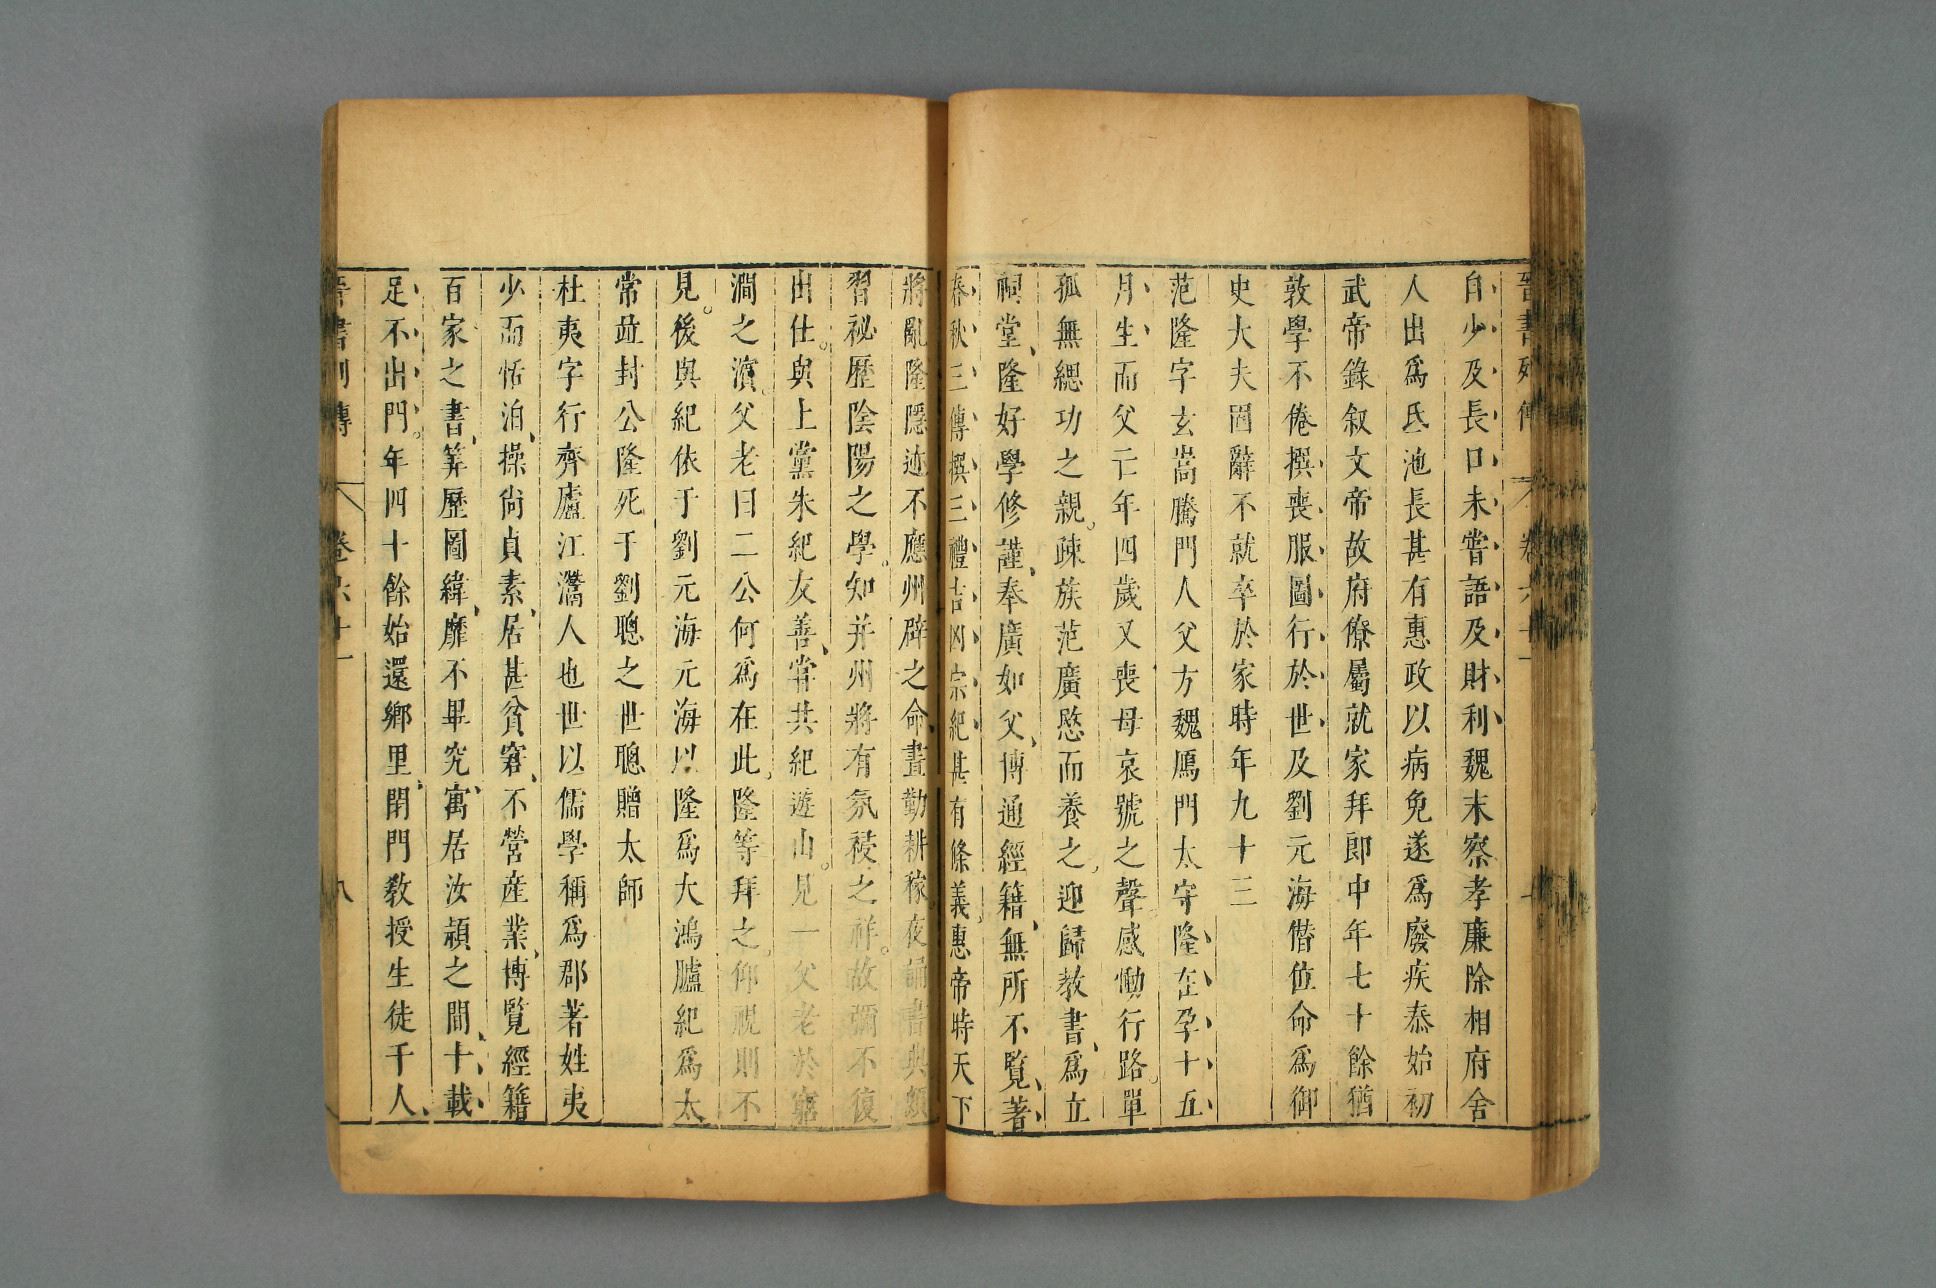 自少及長口未嘗語及財利魏末察孝廉除相府舍
人出爲氐池長甚有惠政以病免遂爲廢疾泰始初
武帝錄叙文帝故府僚屬就家拜郎中年七十餘猶
敦學不倦撰喪服圖行於世及劉元海僭位命爲御
史大夫固辭不就卒於家時年九十三
范隆字玄嵩鴈門人父方魏鴈門太守隆在孕十五
月生而父亡年四歲又喪母哀號之聲感慟行路單
孤無緦功之親。疎族范廣愍而養之迎歸教書、爲立
祠堂、隆好學修謹、奉廣如父、博通經籍、無所不覽、著
春秋三傳撰三禮吉凶宗紀甚有條義惠帝時天下
將亂隆隱迹不應州辟之命、晝勤耕稼夜誦書典頗
習祕歷陰陽之學。知并州將有氛祲之祥。故彌不復
出仕。與上黨朱紀友善、嘗共紀遊山。見一父老於窮
澗之濱。父老曰二公何爲在此。隆等拜之。仰視則不
見。後與紀依于劉元海元海以隆爲大鴻臚紀爲太
常竝封公隆死于劉聰之世聰贈太師
杜夷字行齊廬江灊人也世以儒學稱爲郡著姓夷
少而恬泊、操尚貞素、居甚貧窘、不營産業、博覽經籍
百家之書、筭歷圖緯、靡不畢究寓居汝潁之間、十載
足不出門。年四十餘始還鄉里、閉門教授生徒千人、
晉書列傳 卷六十一 八